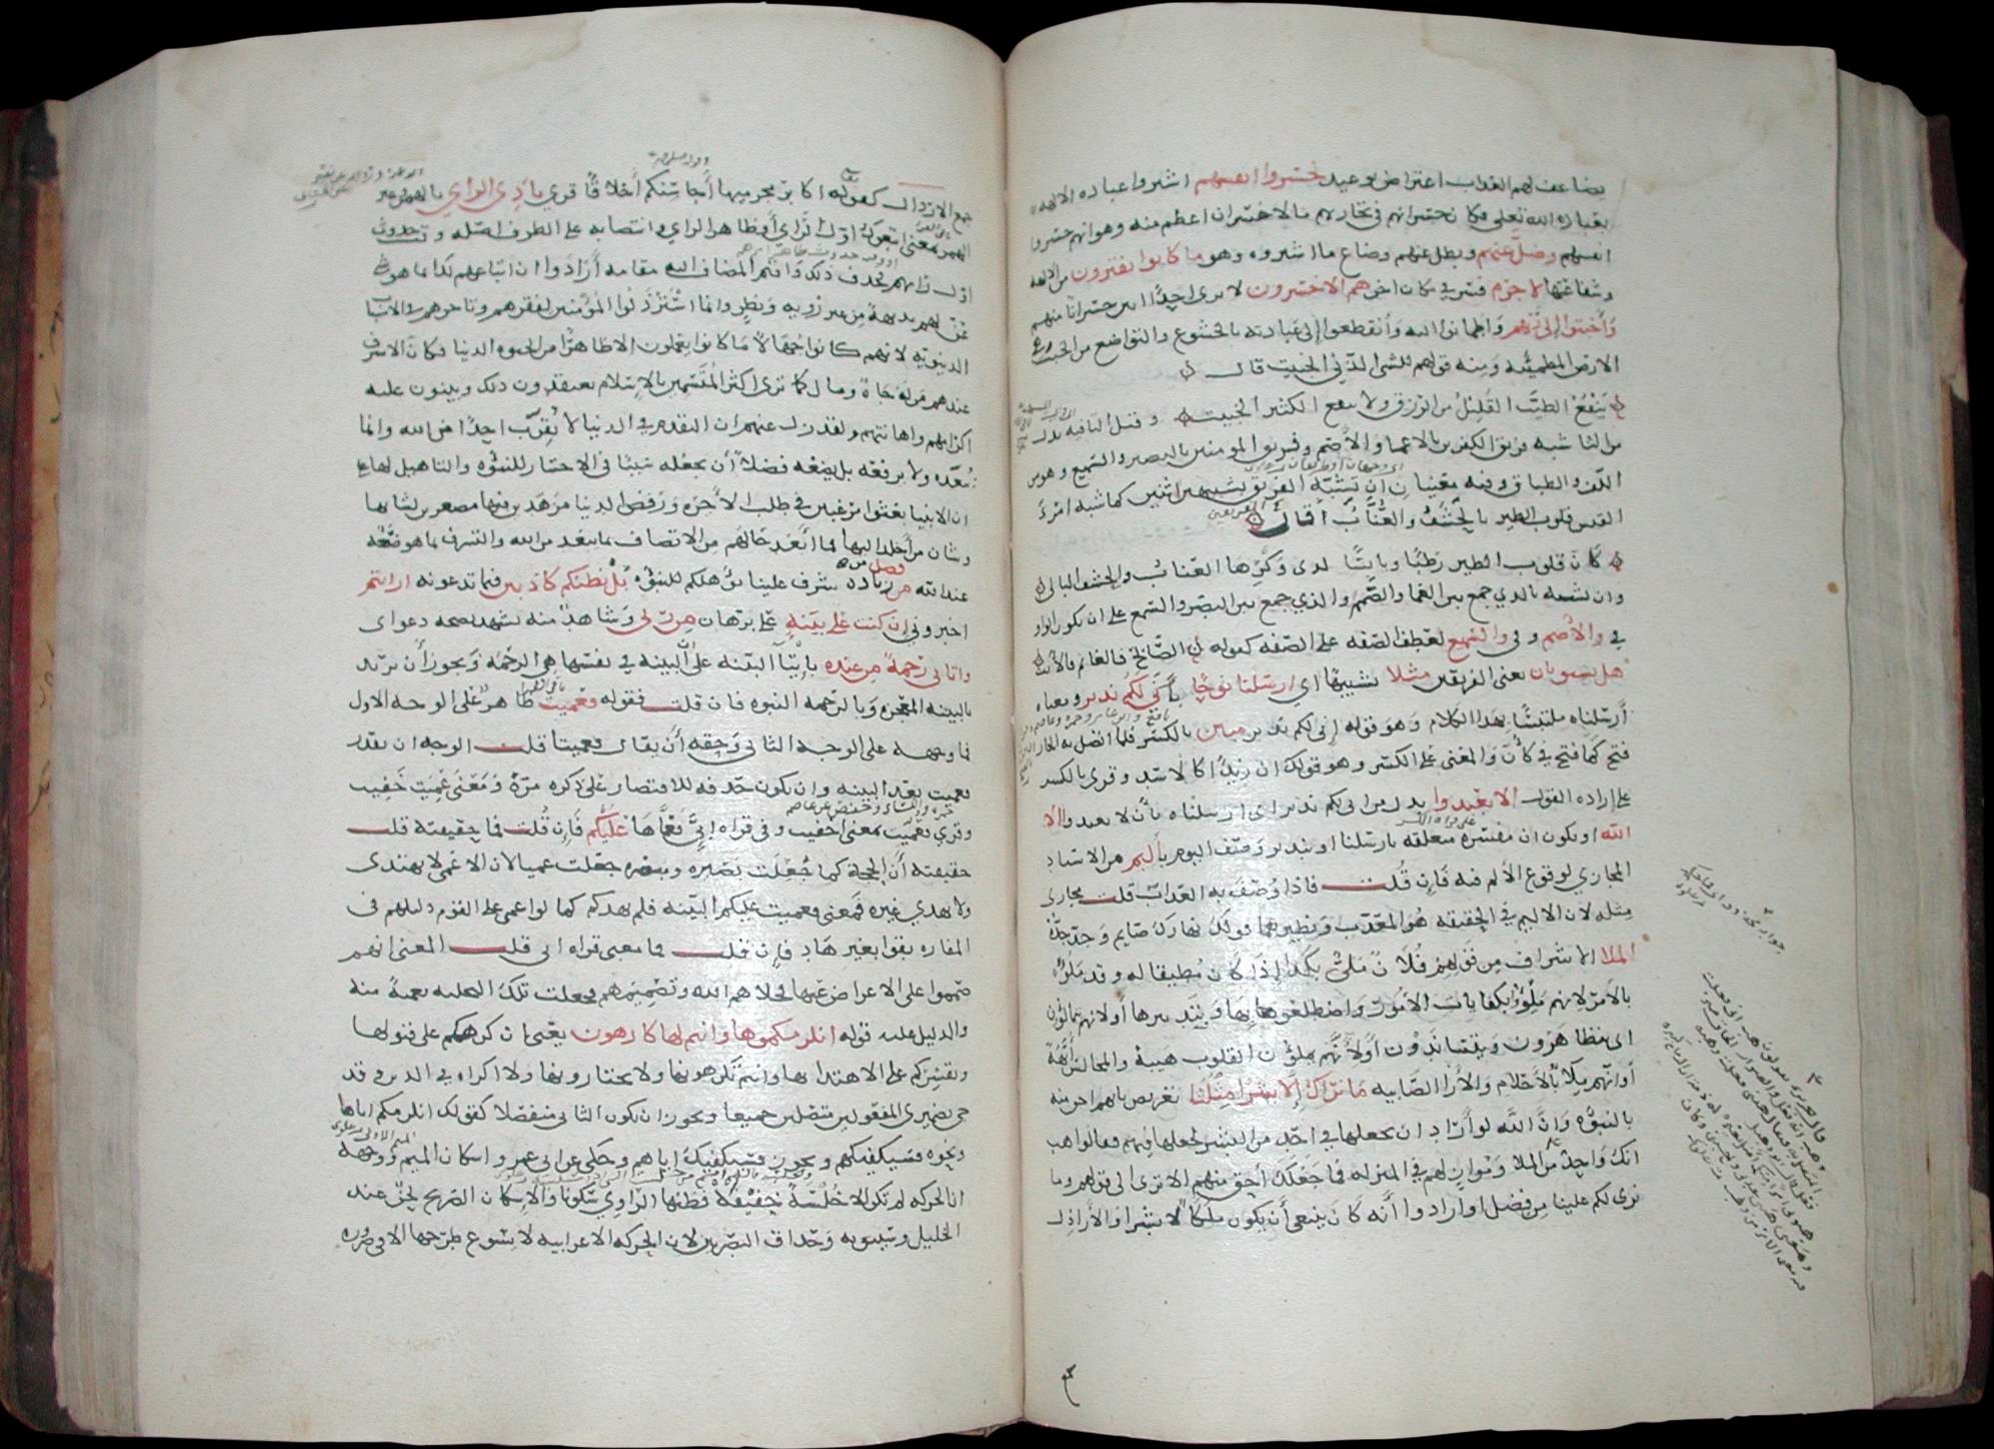 يضاعف لهم العذاب اعتراض بوعيد خسروا انفسهم اشتروا عباده الالهه
بعباده الله تعلى فكان خسرانهم في تجارتهم مالا خسران اعظم منه وهو انهم خسروا
انفسهم وضل عنهم وبطل عنهم وضاع ما اشتروه وهو ما كانوا يفترون من الالهه
وشفاعتها لا جرم فسر في مكان اخر هم الاخسرون لا ترى احدا ابين خسرانا منهم
وأخبتوا إلى ربهم واطمانوا اليه وانقطعوا إلى عبادته بالخشوع والتواضع من الخبت وهي
الارض المطمئنه ومنه قولهم للشى الدني الخبيت قال
ينفع الطيب القليل من الرزق ولا ينفع الكثير الخبيت وقيل التا فيه بدل
من الثا شبه فريق الكفرين بالاعمى والأصم وفريق المومنين بالبصير والسميع وهو من
اللف والطباق وفيه معنيان ان تشبه الفريق تشبيهين اثنين كما شبه امرؤ
القيس قلوب الطير بالحشف والعناب في قال
كأن قلوب الطير رطبا ويابسًا لدى وكرها العناب والحشف البالي
وان تشبهه بالذي جمع بين العمى والصمم والذي جمع بين البصر والسمع على ان تكون الواو
في والأصم وفي والسميع لعطف الصفه على الصفه كقوله الصابح فالغانم فالآيب
هل يستويان يعنى الفريقين مثلا تشبيها اي ارسلنا نوحًا بأني لكم نذير ومعناه
أرسلناه ملتبسًا بهذا الكلام وهو قوله إنى لكم نذير مبين بالكسر فلما اتصل به الجار
فتح كما فتح في كأن والمعنى على الكسر وهو قولك ان زيدًا كالاسد وقرى بالكسر
على إراده القول الا تعبدوا بدل من انى لكم نذير اى ارسلناه بأن لا تعبدوا الا
الله او تكون ان مفسره متعلقه بارسلنا او بنذير وصف اليوم بأليم من الاسناد
المجازي لوقوع الألم فيه فإن قُلت فاذا وُصف به العذاب قلت مجازى
مثله لان الاليم في الحقيقه هو المعذب ونظيرهما قولك نهارك صايم وجد جده
الملا الاشراف من قولهم فلان ملئ بكذا إذا كان مطيقا له وقد ملؤ
بالامر لانهم ملؤا بكفايات الامور واضطلعوا بها وبتدبيرها أو لانهم يتمالؤن
اى يتظاهرون ويتساندون أو لأنهم يملؤن القلوب هيبة والمجالس أبهة
أو انهم ملا بالأحلام والأرا الصايبه ما نراك إلا بشرا مثلنا تعريض بانهم احق منه
بالنبوه وان الله لو أراد ان يجعلها في احد من البشر لجعلها فيهم فقالوا هب
انك واحد من الملا ومواز لهم في المنزله فما جعلك احق منهم الا ترى الى قولهم وما
نرى لكم علينا من فضل او ارادوا أنه كان ينبغى أن يكون ملكا لا بشرا والاراذل
جمع الارذل كقوله اكابر مجرميها أحاسنكم أخلاقًا قرى بادى الراي بالهمز وغير
الهمز بمعنى اتبعوك اول الراى أو ظاهر الراي وانتصابه على الظرف اصله وقت حدوث
اول رايهم فحذف ذلك واقيم المضاف اليه مقامه أرادوا ان اتباعهم لك انما هو شى
عن لهم بديهة من غير رويه ونظر وانما استرذلوا المؤمنين لفقرهم وتاخرهم في الاسباب
الدنيويه لانهم كانوا جهالا ما كانوا يعلمون الا ظاهرًا من الحيوه الدنيا فكان الاشرف
عندهم من له جاة ومال كما ترى اكثر المتسمين بالإسلام يعتقدون ذلك ويبنون عليه
اكرامهم واهانتهم ولقد زل عنهم ان التقدم في الدنيا لا يُقرب احدًا من الله وانما
يبعده ولا يرفعه بل يضعه فضلا أن يجعله سببًا في الاختيار للنبوه والتاهيل لها على
ان الانبيا بعثوا مرغبين في طلب الأخره ورفض الدنيا مزهدين فيها مصغرين لشانها
وشان من أخلد اليها فما أبعد حالهم من الاتصاف بما يبعد من الله والتشرف بما هو ضعه
عند الله من فضل من زياده شرف علينا تؤهلكم للنبوه بل نظنكم كاذبين فيما تدعونه ارايتم
اخبروني إن كنت على بينة على برهان من ربى وشاهد منه يشهد بصحه دعواى
واتانى رحمةً من عنده بإيتا البينه على أن البينه في نفسها هي الرحمه ويجوز أن يريد
بالبينه المعجزه وبالرحمه النبوه فان قلت فقوله فعميت ظاهر على الوجه الاول
فما وجهه على الوجه الثانى وحقه أن يقال فعميتا قلت الوجه ان يقدر
فعميت بعد البينه وان يكون حذفه للاقتصار على ذكره مرة ومعنى عميت خفيت
وقرى فعميت بمعنى اخفيت وفي قراه أبي فعماها عليكم فإن قُلت فما حقيقته قلت
حقيقته أن الحجة كما جُعلت بصيره ومبصره جعلت عميا لان الاعمى لا يهتدى
ولا يهدي غيره فمعنى فعميت عليكم البينه فلم تهدكم كما لو اعمى على القوم دليلهم فى
المفازه بقوا بغير هاد فإن قلت فما معنى قراه ابى قلت المعنى انهم
صمموا على الاعراض عنها فخلاهم الله وتصميمهم فجعلت تلك التخليه تعميةً منه
والدليل عليه قوله انلزمكموها وانتم لها كارهون يعنى ان كرهكم على قبولها
ونقسركم على الاهتدا بها وانتم تكرهونها ولا تختارونها ولا اكراه في الدين وقد
جى بضميرى المفعولين متصلين جميعا ويجوز ان يكون الثانى منفصلا كقولك انلزمكم اياها
ونحوه فسيكفيكهم ويجوز فسيكفيك اياهم وحكى عن ابى عمرو اسكان الميم ووجهه
ان الحركه لم تكن الا خلسة خفيفة فظنها الراوي سكونا والإسكان الصريح لحن عند
الخليل وسيبويه وحذاق البصريين لان الحركه الاعرابيه لا يسوغ طرحها الا في ضروره